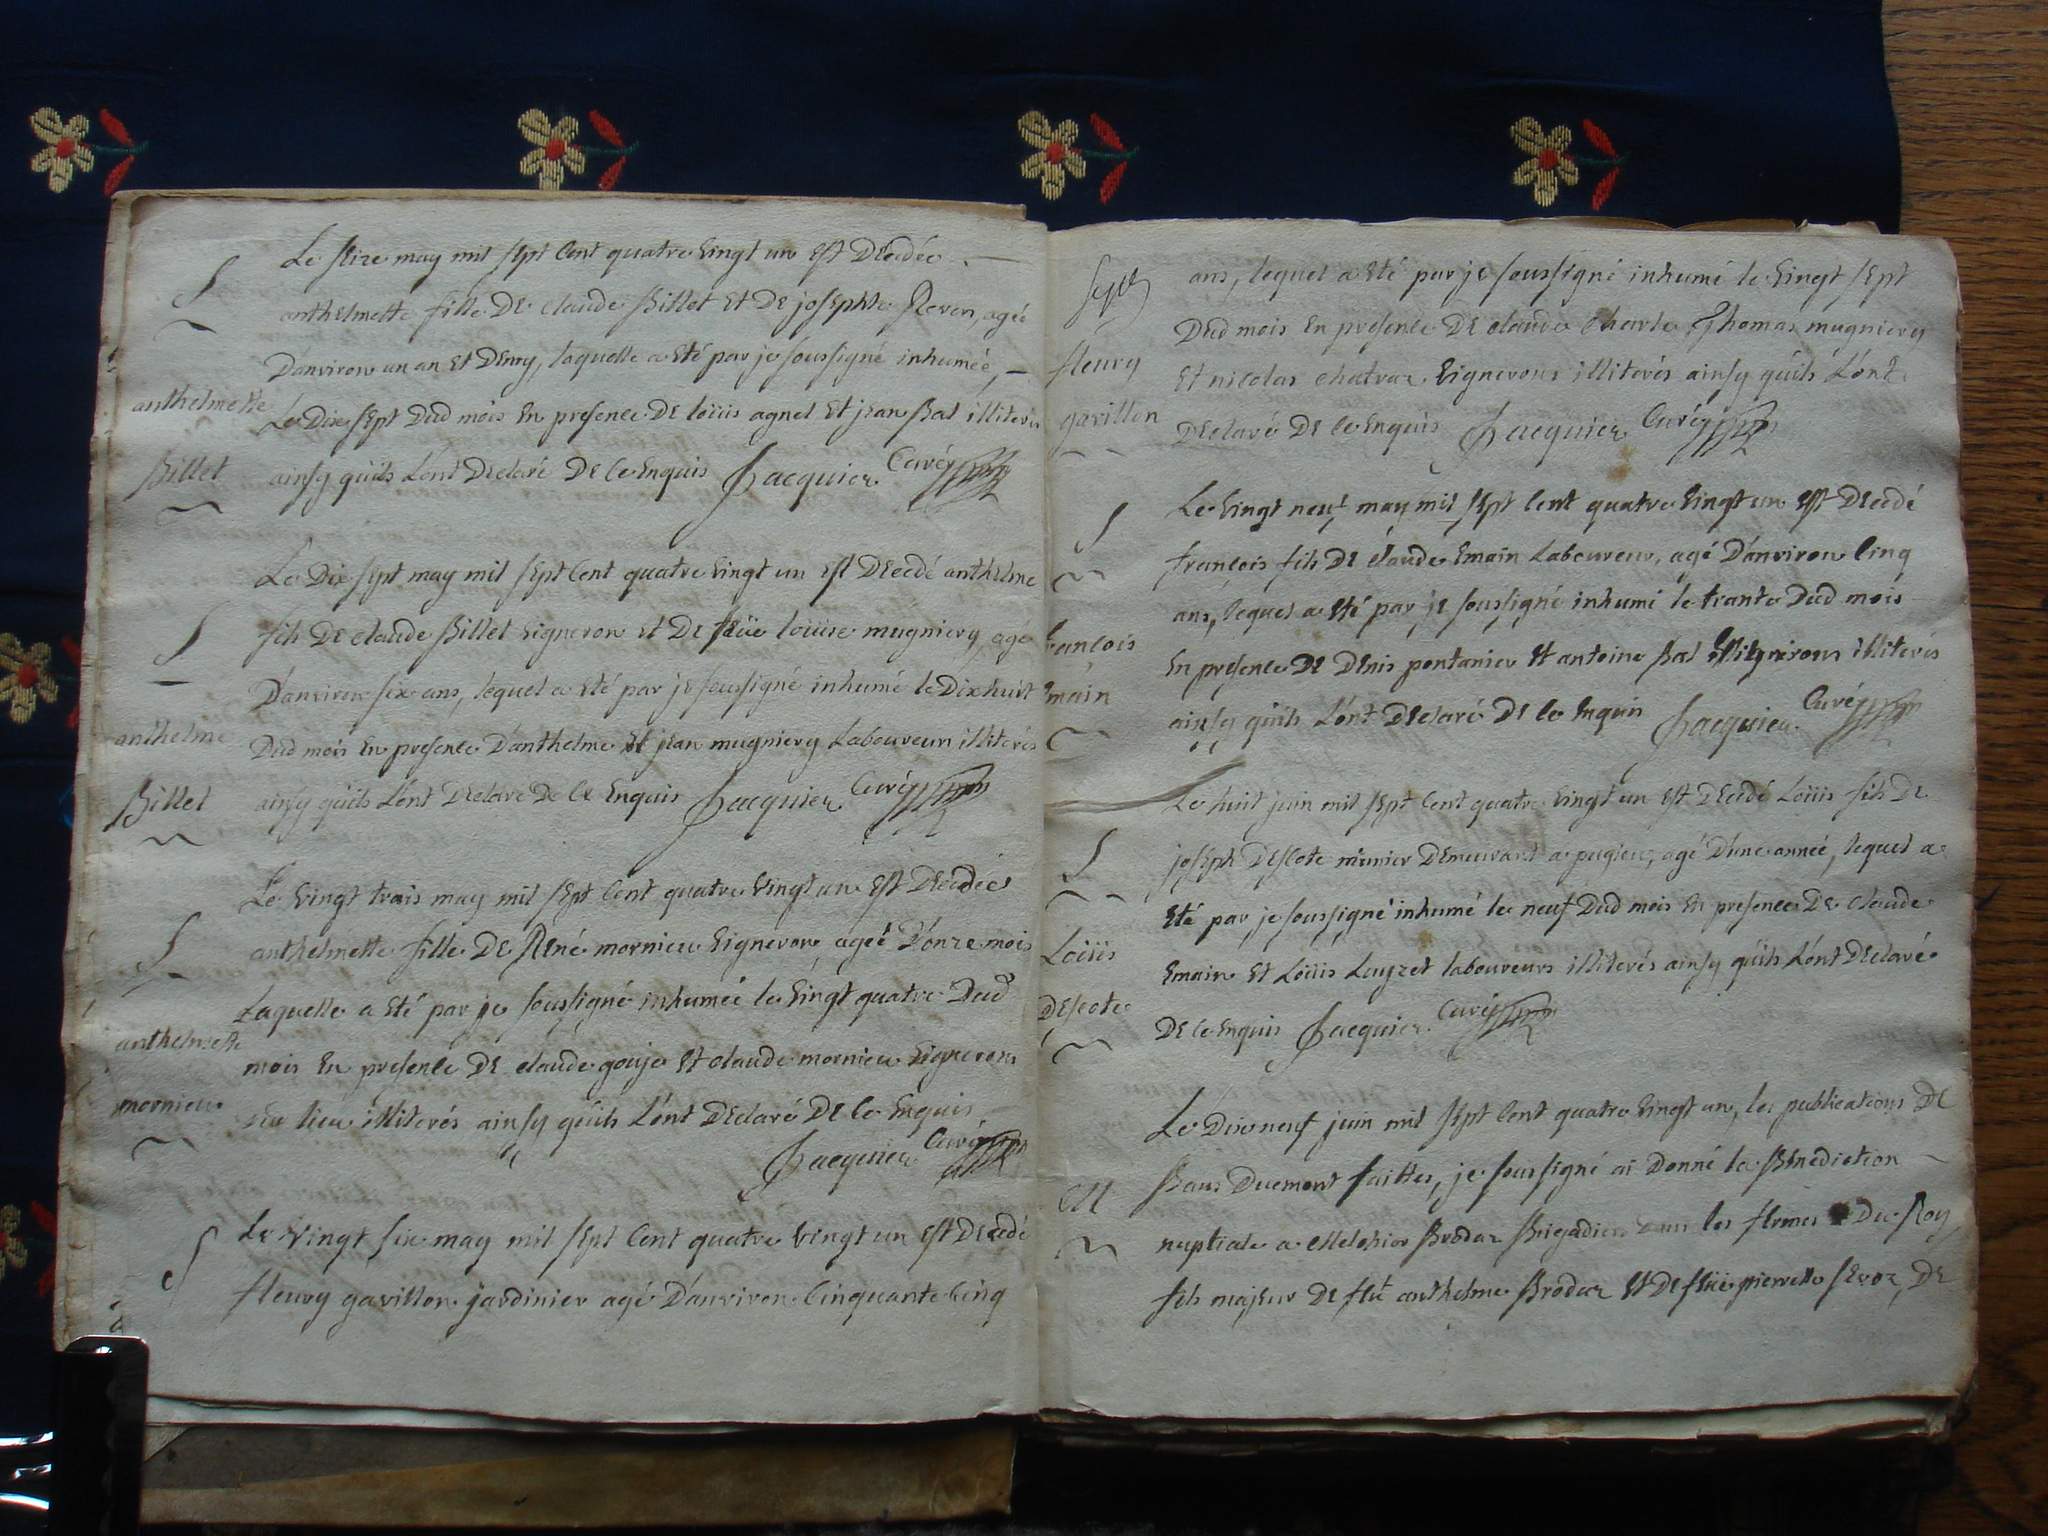 S
Le seize may mil sept cent quatre vingt un est décédée
anthelmette fille de claude Billet et de josephte Reven, agée
d'anviron un an et demy, laquelle a eté par je soussigné inhumée,
anthelmette
Le dix sept dud mois en presence de loüis agnel et jean Bal illiterés
Billet
ainsy quils l'ont declaré de ce enquis Jacquier Curé
Le dix sept may mil sept cent quatre vingt un est décédé anthelme
S
fils de claude Billet vigneron et de feüe loüise mugniery, agé
d'anviron six ans, lequel a eté par je soussigné inhumé le dixhuit
anthelme
dud mois en presence d'anthelme et jean mugniery laboureurs illiterés
Billet
ainsy quils l'ont declaré de ce enquis Jacquier Curé
Le vingt trois may mil sept cent quatre vingt un est décédée
S
anthelmette fille de René mornieu vigneron, ageé d'onze mois
Laquelle a eté par je soussigné inhumée le vingt quatre dud
anthelmette
mois en presence de claude gouje et claude mornieu vignerons
mornieu
lieu illiterés ainsy quils l'ont declaré de ce enquis
Jacquier Curé
S
Le vingt six may mil sept cent quatre vingt un est décédé
fleury gavillon jardinier agé d'anviron cinquante cinq
ans, lequel a eté par je soussigné inhumé le vingt sept
dud mois en presence de claude charle Thomas mugniery
fleury
et nicolas chatraz vignerons illiterés ainsy quils l'ont
gavillon
declaré de ce enquis Jacquier Curé
Le vingt neuf may mil sept cent quatre vingt un est décédé
S
françois fils de claude Emain Laboureur, agé d'anviron cinq
ans, lequel a eté par je soussigné inhumé le trante dud mois
françois
en presence de denis pontanier et antoine Bal vignerons illiterés
Emain
ainsy quils l'ont declaré de ce enquis Jacquier Curé
Le huit juin mil sept cent quatre vingt un est décédé Loüis fils de
S
joseph descote munier demeurant a pugieu, agé d'une année, lequel a
eté par je soussigné inhumé le neuf dud mois en presence de claude
Loüis
Emain et Loüis Luyzet laboureurs illiterés ainsy quils l'ont declaré
descote
de ce enquis Jacquier Curé
Le dixneuf juin mil sept cent quatre vingt un, les publications de
Bans duemont faittes, je soussigné ai donné la Bénédiction
M
nuptiale a Melchior Brodaz Brigadier dans les fermes du Roy
fils majeur de feu anthelme Brodaz et de feüe pierrette seroz, de